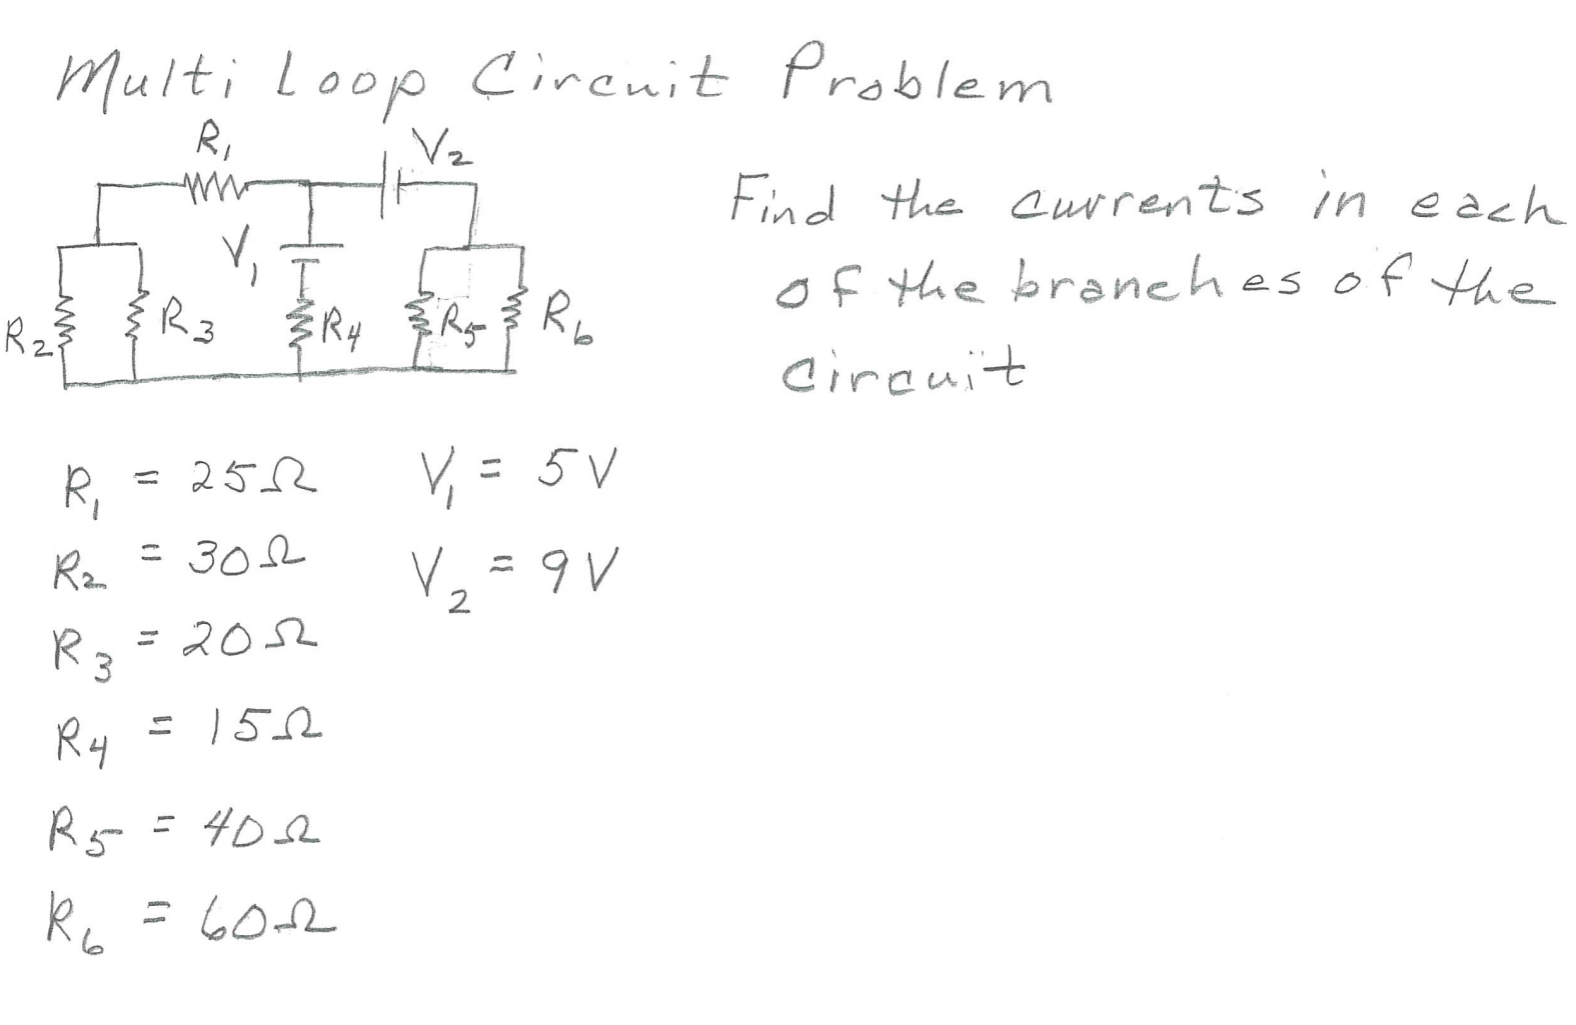 Multi Loop Circuit Problem
R₁
V₂
V₁
R₂
R₃
R₄
R₅
R₆
Find the currents in each
of the branches of the
circuit
R₁ = 25Ω
V₁ = 5V
R₂ = 30Ω
V₂ = 9V
R₃ = 20Ω
R₄ = 15Ω
R₅ = 40Ω
R₆ = 60Ω